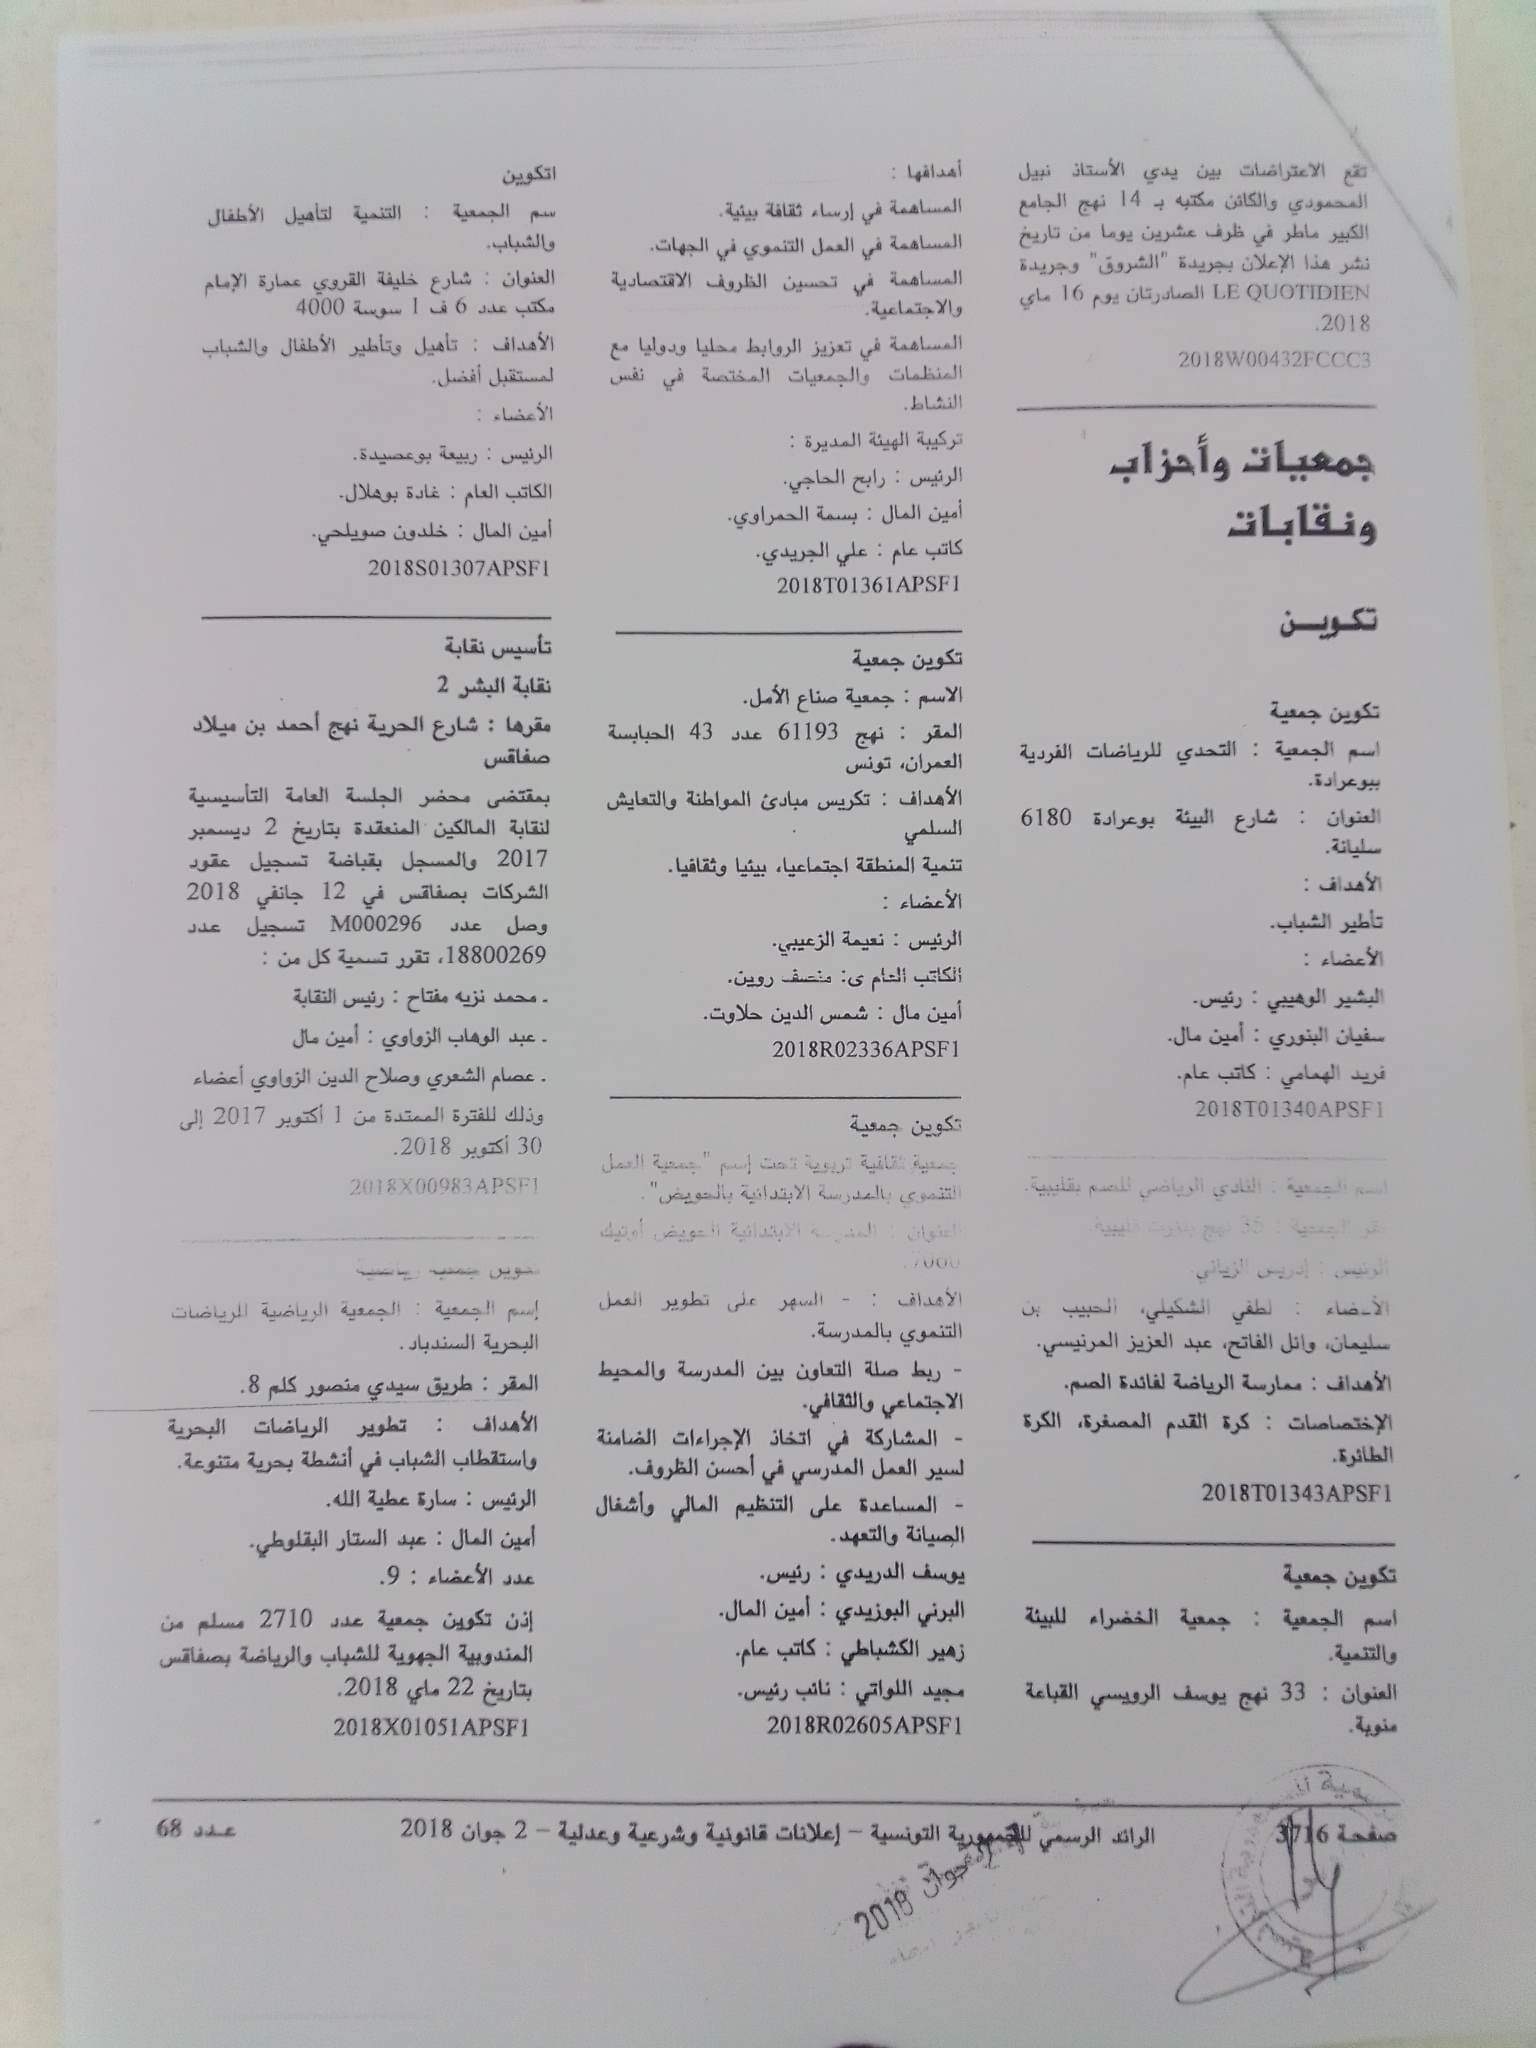 تقع الاعتراضات بين يدي الأستاذ نبيل
المحمودي والكائن مكتبه بـ 14 نهج الجامع
الكبير ماطر في ظرف عشرين يوما من تاريخ
نشر هذا الإعلان بجريدة "الشروق" وجريدة
LE QUOTIDIEN الصادرتان يوم 16 ماي
2018.
2018W00432FCCC3
جمعيات وأحزاب
ونقابات
تكويـــن
تكوين جمعية
اسم الجمعية : التحدي للرياضات الفردية
ببوعرادة.
العنوان : شارع البيئة بوعرادة 6180
سليانة.
الأهداف :
تأطير الشباب.
الأعضاء :
البشير الوهيبي : رئيس.
سفيان البنوري : أمين مال.
فريد الهمامي : كاتب عام.
2018T01340APSF1
اسم الجمعية : النادي الرياضي للصم بقليبية.
مقر الجمعية : 35 نهج بنزرت قليبية.
الرئيس : إدريس الزياني.
الأعضاء : لطفي الشكيلي، الحبيب بن
سليمان، وائل الفاتح، عبد العزيز المرنيسي.
الأهداف : ممارسة الرياضة لفائدة الصم.
الإختصاصات : كرة القدم المصغرة، الكرة
الطائرة.
2018T01343APSF1
تكوين جمعية
اسم الجمعية : جمعية الخضراء للبيئة
والتنمية.
العنوان : 33 نهج يوسف الرويسي القباعة
منوبة.
أهدافها :
المساهمة في إرساء ثقافة بيئية.
المساهمة في العمل التنموي في الجهات.
المساهمة في تحسين الظروف الاقتصادية
والاجتماعية.
المساهمة في تعزيز الروابط محليا ودوليا مع
المنظمات والجمعيات المختصة في نفس
النشاط.
تركيبة الهيئة المديرة :
الرئيس : رابح الحاجي.
أمين المال : بسمة الحمراوي.
كاتب عام : علي الجريدي.
2018T01361APSF1
تكوين جمعية
الاسم : جمعية صناع الأمل.
المقر : نهج 61193 عدد 43 الحبابسة
العمران، تونس
الأهداف : تكريس مبادئ المواطنة والتعايش
السلمي
تنمية المنطقة اجتماعيا، بيئيا وثقافيا.
الأعضاء :
الرئيس : نعيمة الزعيبي.
الكاتب العام ى: منصف روين.
أمين مال : شمس الدين حلاوت.
2018R02336APSF1
تكوين جمعية
جمعية ثقافية تربوية تحت إسم "جمعية العمل
التنموي بالمدرسة الابتدائية بالحويض".
العنوان : المدرسة الابتدائية الحويض أوتيك
7060.
الأهداف : - السهر على تطوير العمل
التنموي بالمدرسة.
- ربط صلة التعاون بين المدرسة والمحيط
الاجتماعي والثقافي.
- المشاركة في اتخاذ الإجراءات الضامنة
لسير العمل المدرسي في أحسن الظروف.
- المساعدة على التنظيم المالي وأشغال
الصيانة والتعهد.
يوسف الدريدي : رئيس.
البرني البوزيدي : أمين المال.
زهير الكشباطي : كاتب عام.
مجيد اللواتي : نائب رئيس.
2018R02605APSF1
اتكوين
سم الجمعية : التنمية لتأهيل الأطفال
والشباب.
العنوان : شارع خليفة القروي عمارة الإمام
مكتب عدد 6 ف 1 سوسة 4000
الأهداف : تأهيل وتأطير الأطفال والشباب
لمستقبل أفضل.
الأعضاء :
الرئيس : ربيعة بوعصيدة.
الكاتب العام : غادة بوهلال.
أمين المال : خلدون صويلحي.
2018S01307APSF1
تأسيس نقابة
نقابة البشر 2
مقرها : شارع الحرية نهج أحمد بن ميلاد
صفاقس
بمقتضى محضر الجلسة العامة التأسيسية
لنقابة المالكين المنعقدة بتاريخ 2 ديسمبر
2017 والمسجل بقباضة تسجيل عقود
الشركات بصفاقس في 12 جانفي 2018
وصل عدد M000296 تسجيل عدد
18800269، تقرر تسمية كل من :
ـ محمد نزيه مفتاح : رئيس النقابة
ـ عبد الوهاب الزواوي : أمين مال
ـ عصام الشعري وصلاح الدين الزواوي أعضاء
وذلك للفترة الممتدة من 1 أكتوبر 2017 إلى
30 أكتوبر 2018.
2018X00983APSF1
تكوين جمعية رياضية
إسم الجمعية : الجمعية الرياضية للرياضات
البحرية السندباد.
المقر : طريق سيدي منصور كلم 8.
الأهداف : تطوير الرياضات البحرية
واستقطاب الشباب في أنشطة بحرية متنوعة.
الرئيس : سارة عطية الله.
أمين المال : عبد الستار البقلوطي.
عدد الأعضاء : 9.
إذن تكوين جمعية عدد 2710 مسلم من
المندوبية الجهوية للشباب والرياضة بصفاقس
بتاريخ 22 ماي 2018.
2018X01051APSF1
صفحة 3716
الرائد الرسمي للجمهورية التونسية – إعلانات قانونية وشرعية وعدلية – 2 جوان 2018
عـدد 68
جوان 2018